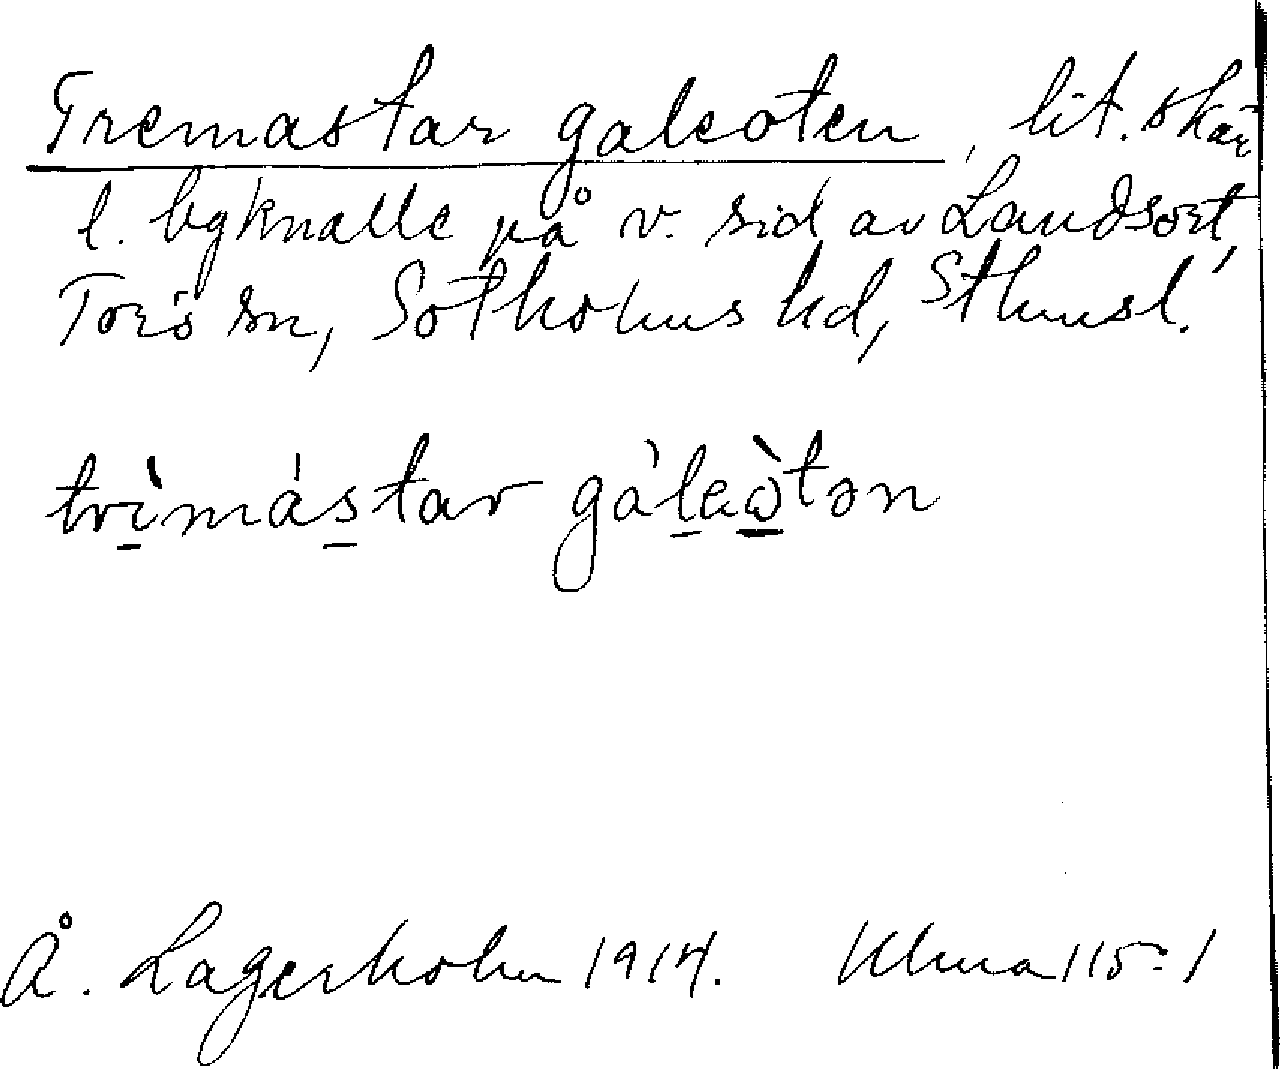 Tremastar galeoten, lit. skär
l. bgknalle på v. sid av Landsort,
Torö sn, Sotholms hd, Sthmsl.
trìmástar gáleòtən
Å. Lagerholm 1914. Ulma 115:1